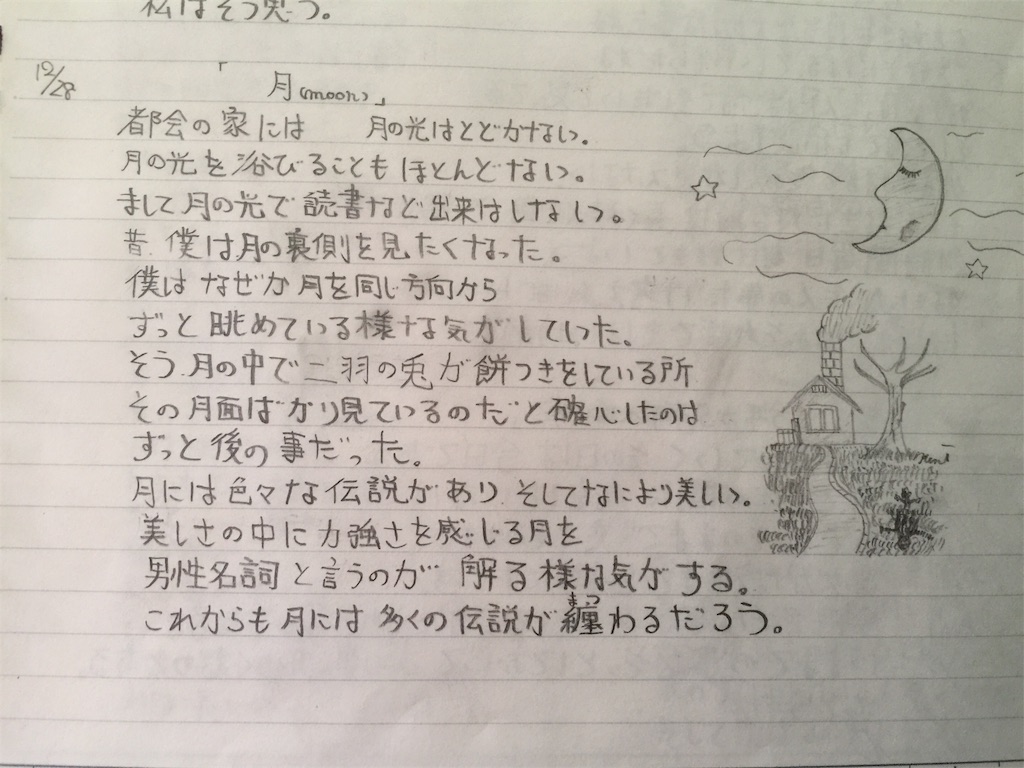 私はそう思う。
12/28
「　月(moon)」
都会の家には　月の光はとどかない。
月の光を浴びることもほとんどない。
まして月の光で読書など出来はしない。
昔、僕は月の裏側を見たくなった。
僕はなぜか月を同じ方向から
ずっと眺めている様な気がしていた。
そう、月の中で二羽の兎が餅つきをしている所
その月面ばかり見ているのだと確心したのは
ずっと後の事だった。
月には色々な伝説があり、そしてなにより美しい。
美しさの中に力強さを感じる月を
男性名詞と言うのが解る様な気がする。
これからも月には多くの伝説が纏わるだろう。
まつ